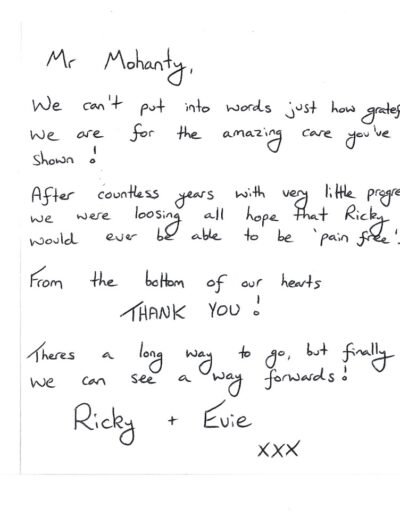 Mr Mohanty,
We can't put into words just how gratef
we are for the amazing care you've
shown!
After countless years with very little progre
we were loosing all hope that Ricky
would ever be able to be 'pain free'.
From the bottom of our hearts
THANK YOU!
Theres a long way to go, but finally
we can see a way forwards!
Ricky + Evie
xxx